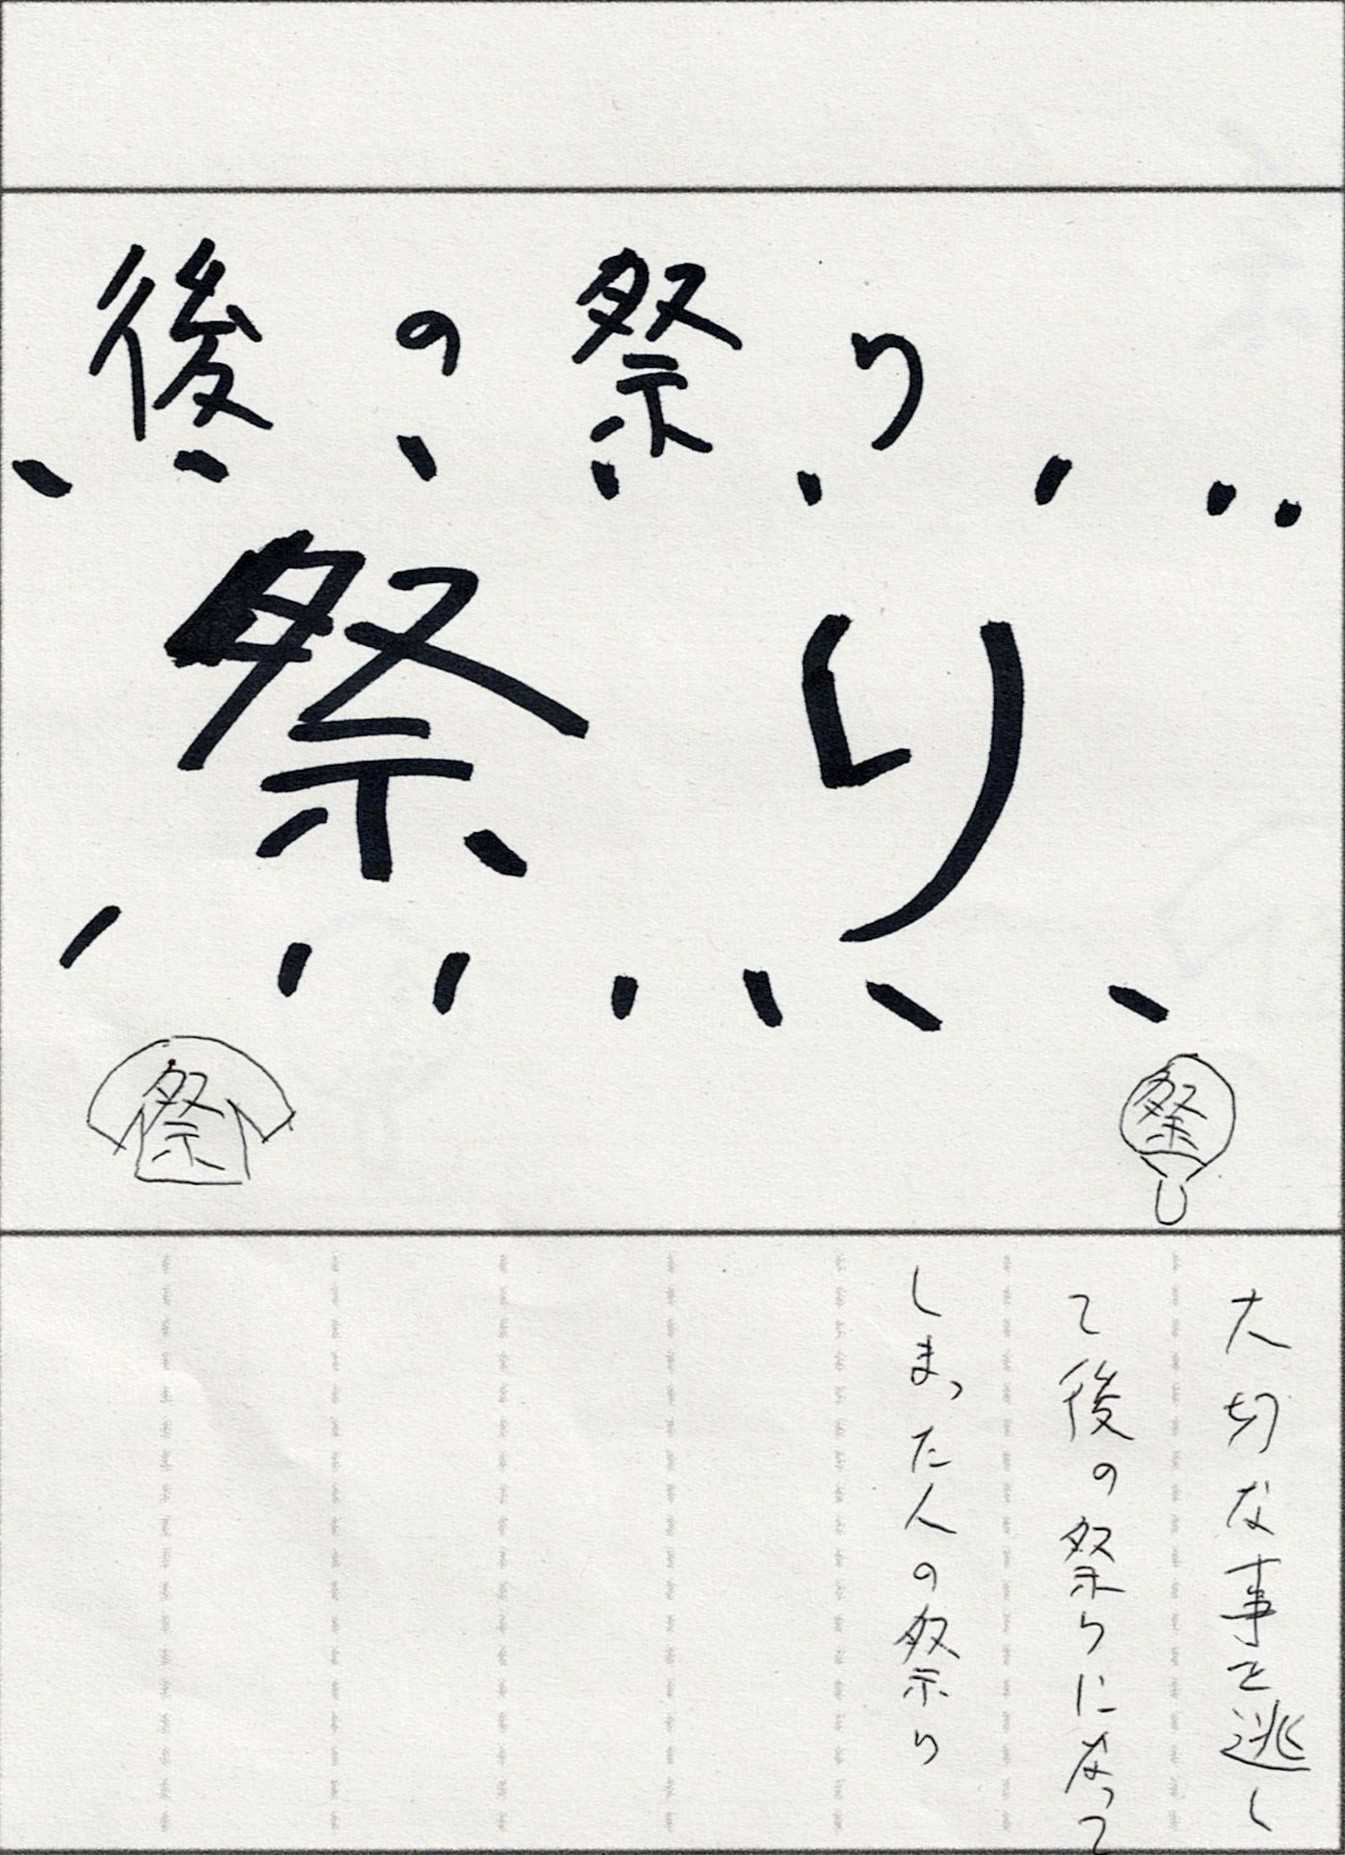 後の祭り
祭り
祭
祭
大切な事を逃し
て後の祭りになって
しまった人の祭り